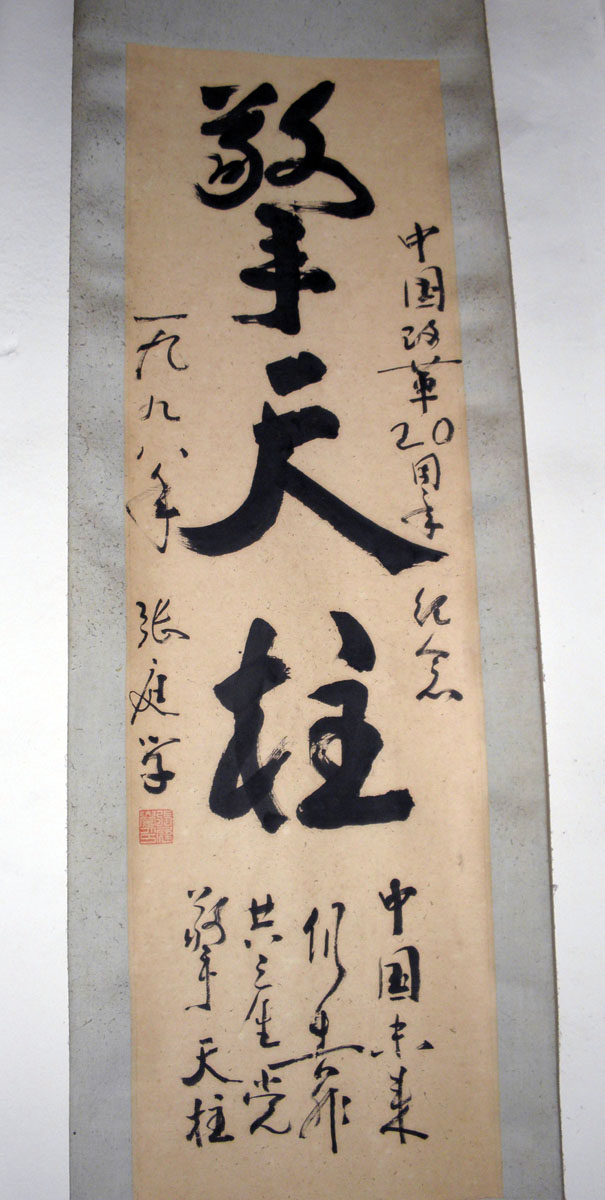 中国改革20周年 纪念
擎天柱
一九九八年 张庭学
中国未来
靠
共产党
擎天柱